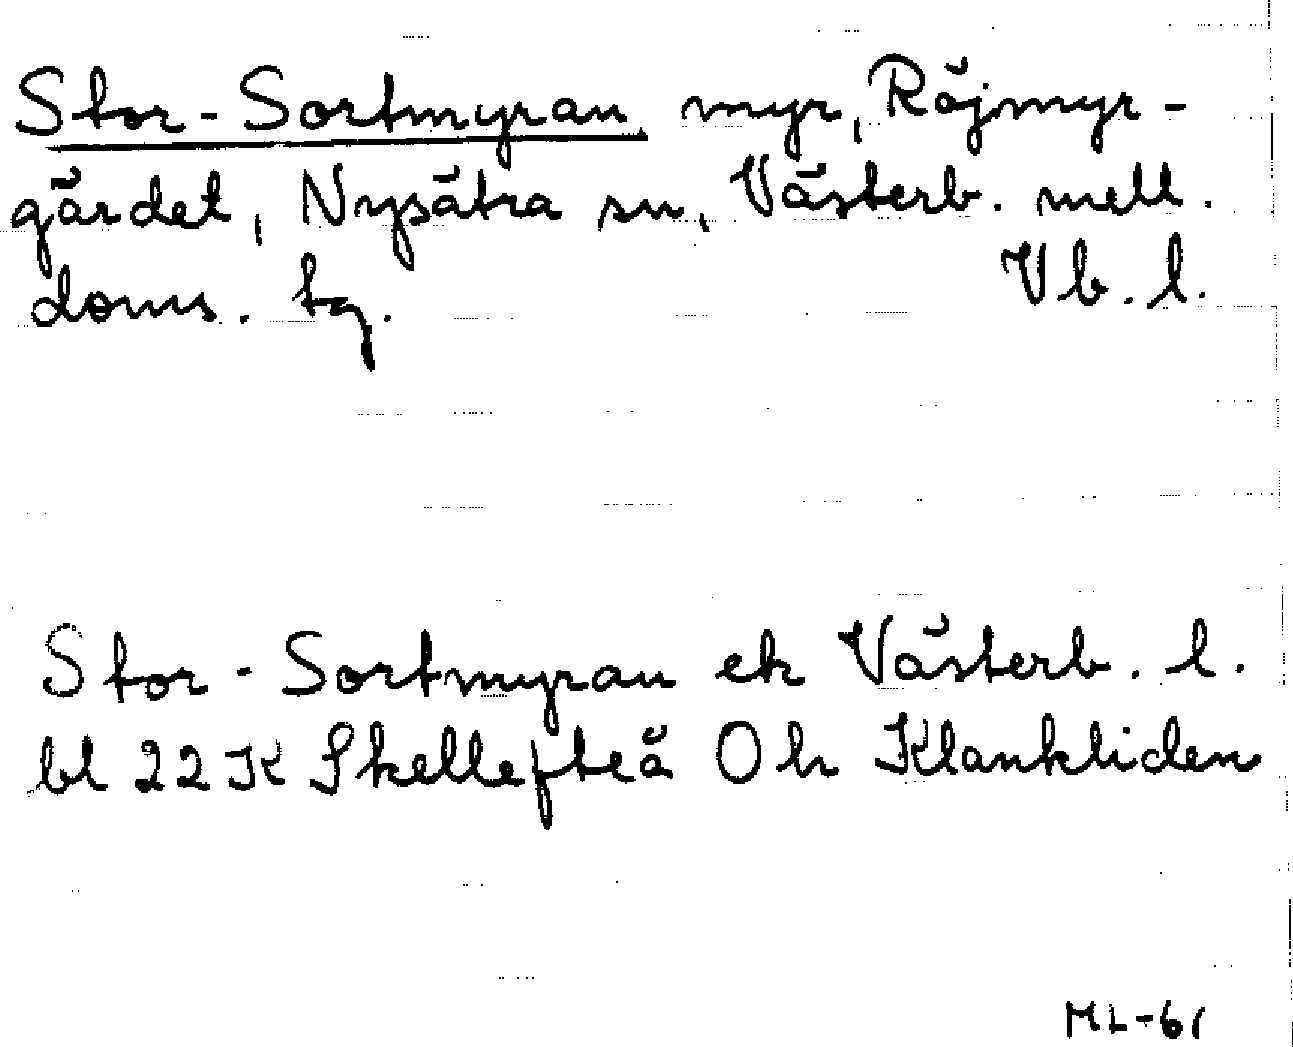 Stor-Sortmyran, myr, Röjmyr-
gärdet, Nysätra sn, Västerb. mell.
doms. tg. Vb. l.
Stor-Sortmyran ek Västerb. l.
bl 22K Skellefteå Oh Klankliden
ML-61